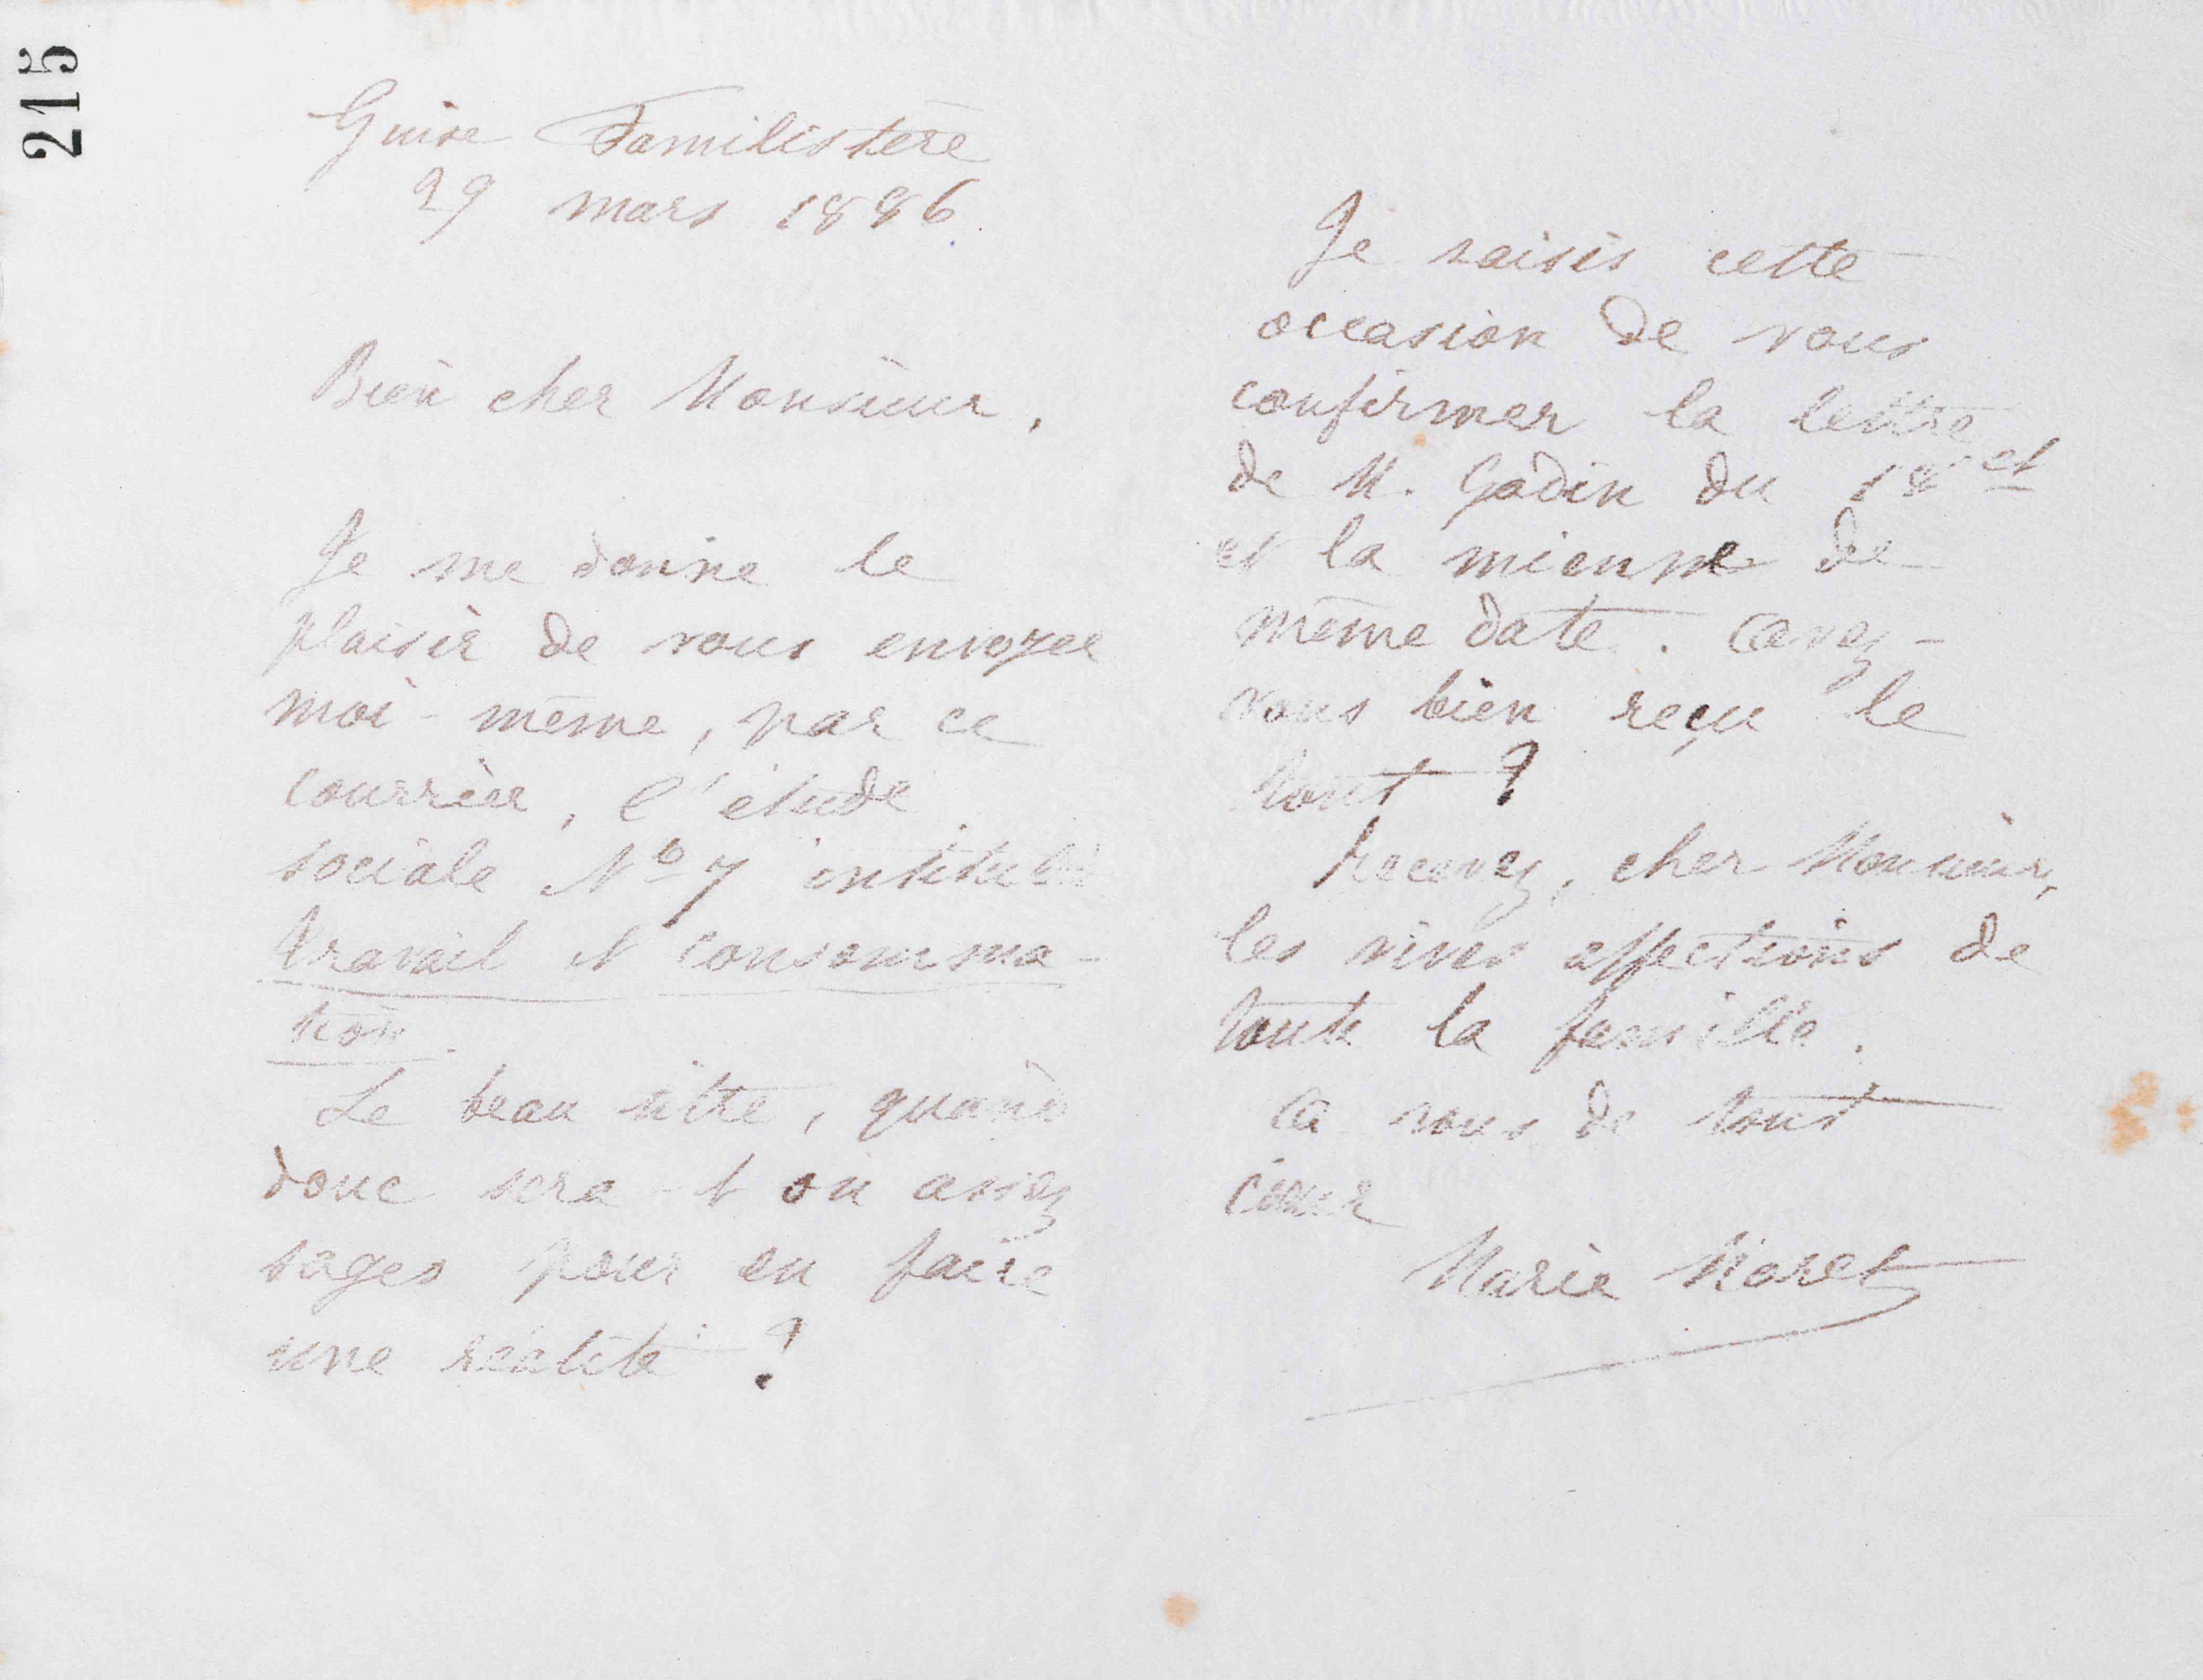 215
Guise Familistère
29 mars 1886.
Bien cher Monsieur,
Je me donne le
plaisir de vous envoyer
moi-même, par ce
courrier, l'étude
sociale No 7 intitulée
travail et consomma-
tion.
Le beau titre, quand
donc sera-t-on assez
sages pour en faire
une réalité ?
Je saisis cette
occasion de vous
confirmer la lettre
de M. Godin du 18 ct
et la mienne de
même date. Avez-
vous bien reçu le
tout ?
Recevez, cher Monsieur,
les vives affections de
toute la famille.
A vous de tout
cœur
Marie Moret